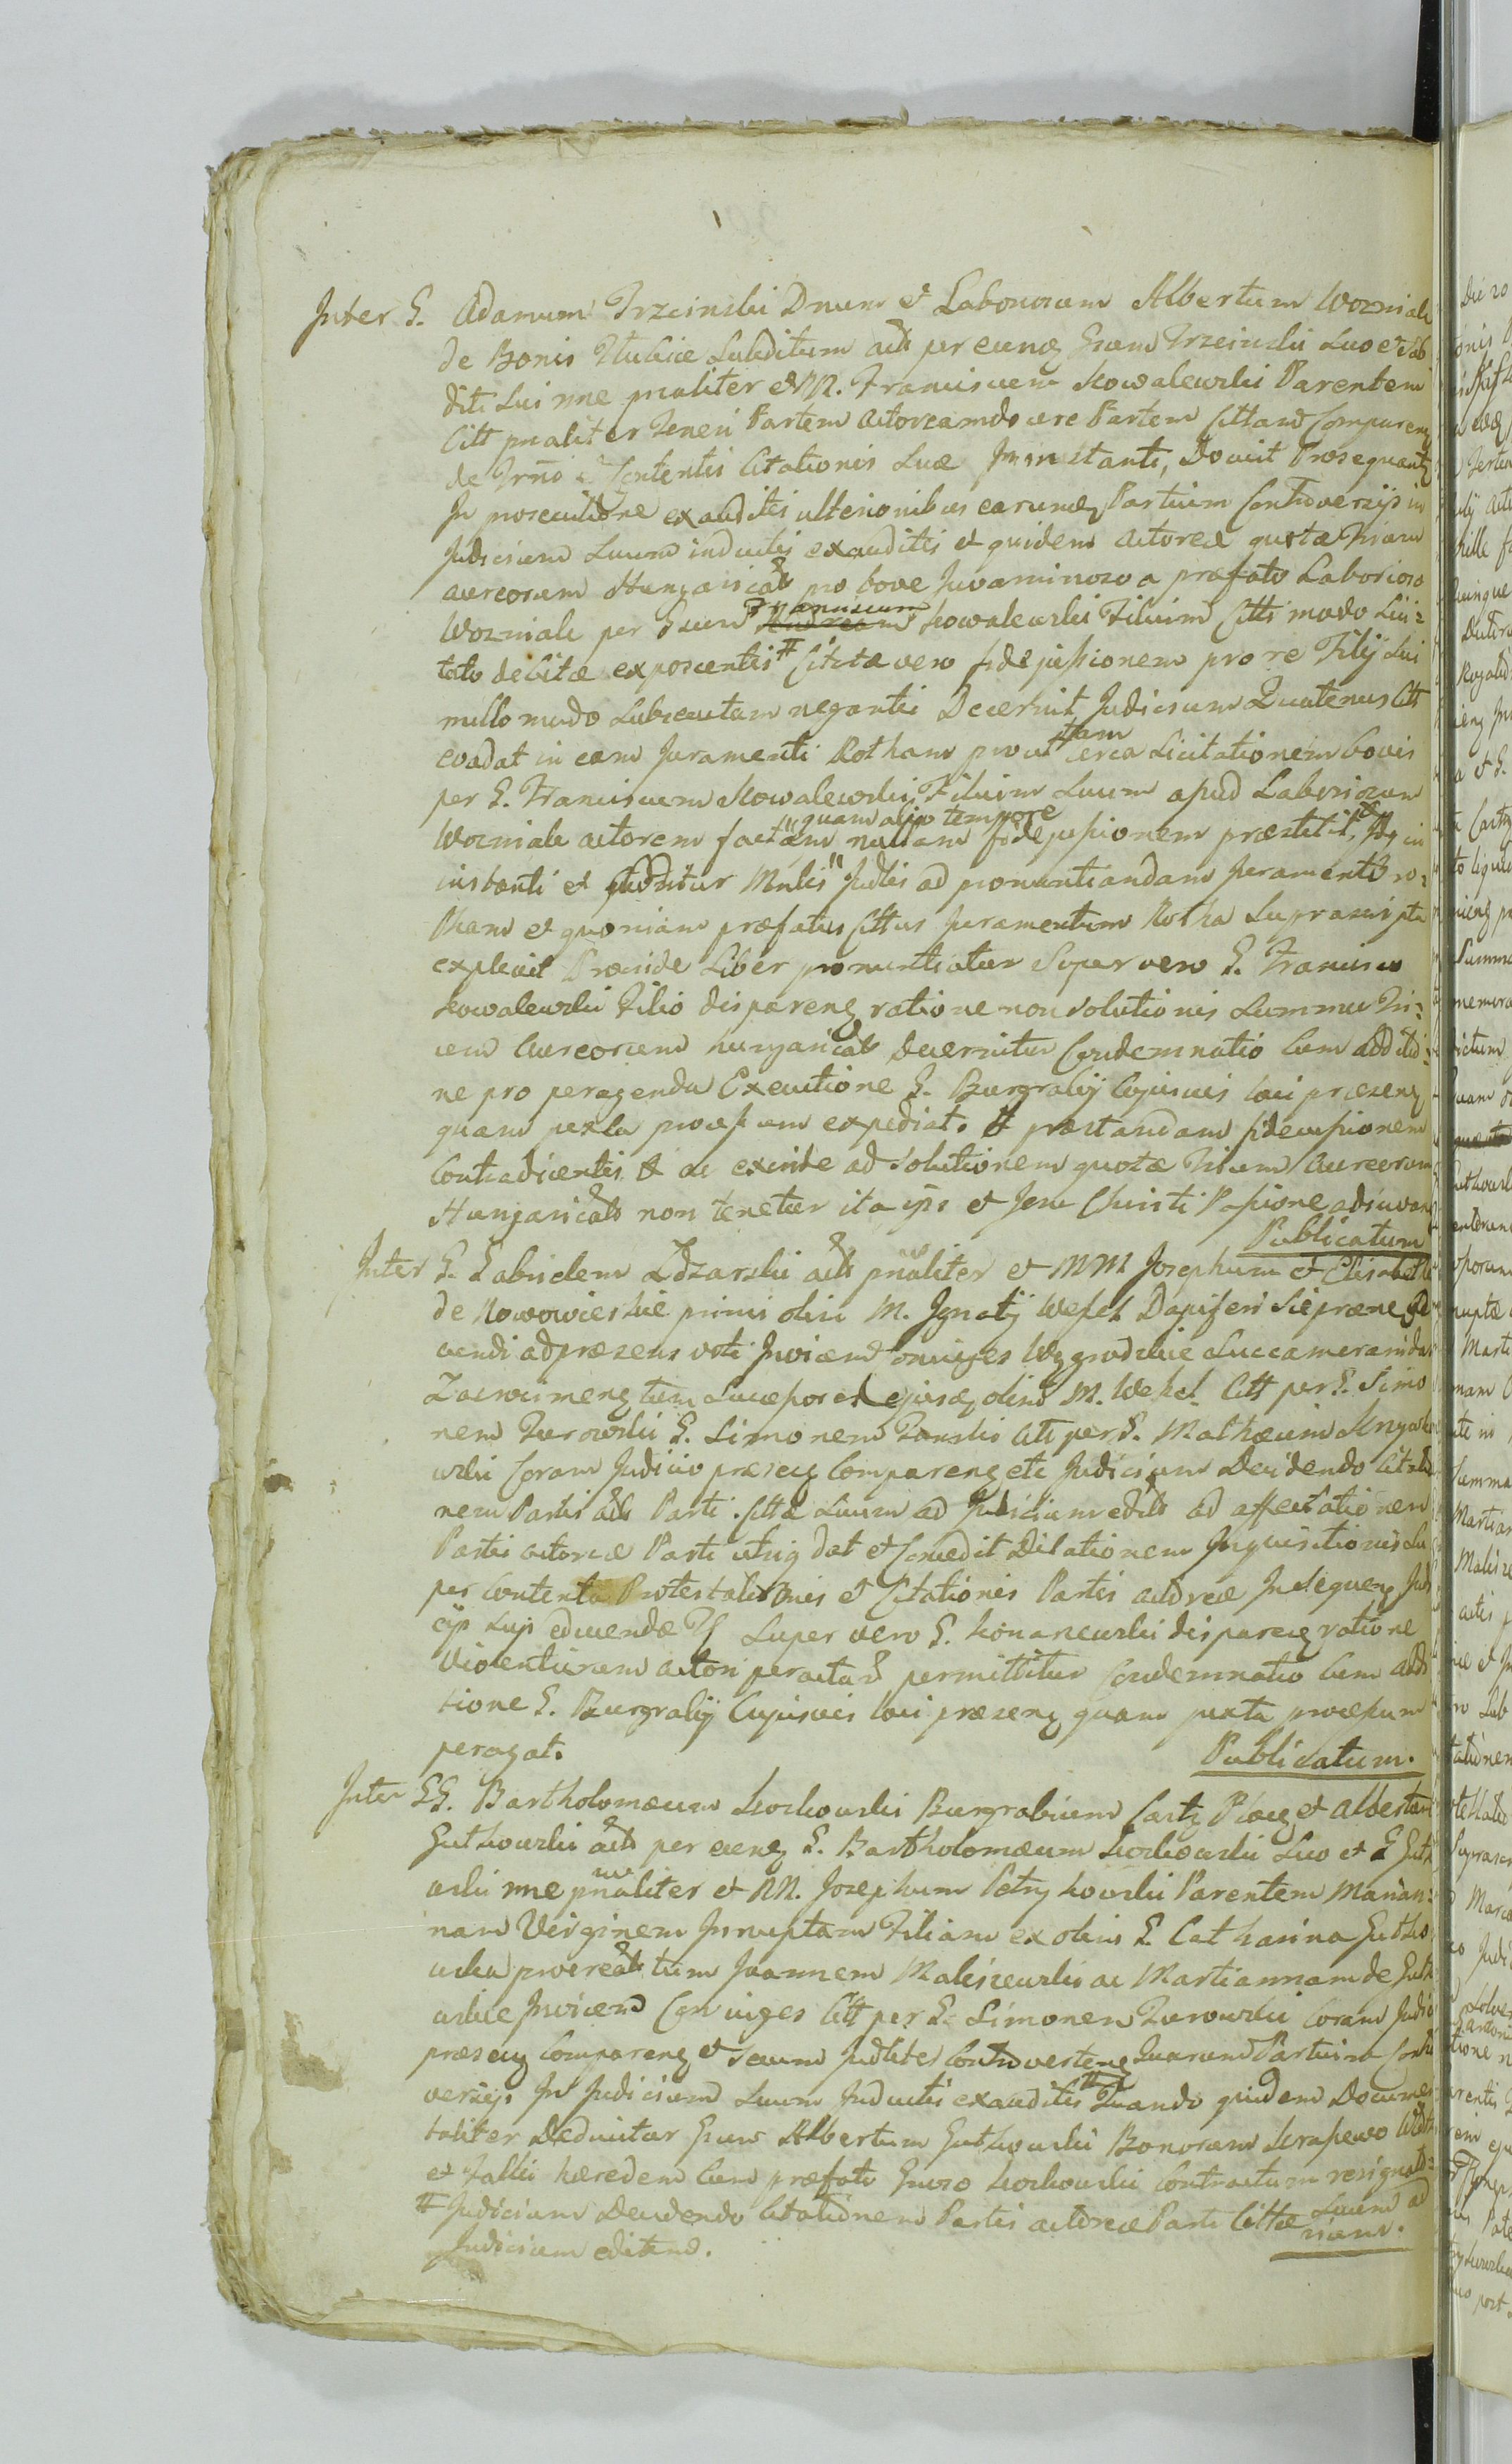 Inter G. Adamum Trzcinski Dnum et Laboriosum Albertum Wozniak
de Bonis Subditum act per eundq Grum Trzcinski Suo et Sub
diti Sui nne pnaliter et M. Franciscum Kowalewski Parentem
Citt pnaliter Teneri Partem Actoream docere Partem Cittam Comparen
de Trno et Contentis Citationis Suae In instanti, Docuit Prosequantq
In prosecutione exauditis ulterioribus earumq Partium Controversijs in
Judicium Suum inductis exauditis et quidem Actorea quotae Trium
aureorum Hungaricalt pro bove Juvaminoso a praefato Laborioso
Wozniak per Grum Franciscum Kowalewski Filium Citti modo Lici=
tato debitae exposcentis # Cittae vero fidejussionem pro re Filij Sui
nullo modo Subsecutam negantis Decernit Judicium Quatenus Citt
evadat in eam Juramenti Rotham prout tam circa Licitationem bovis
per G. Franciscum Kowalewski Filium Suum apud Laboriosum
Wozniak actorem factam " quam alio tempore nullam fidejussionem praestitit, in
instanti et " Judlis ad pronuntiandam Juramenti ro=
tham et quoniam praefatus Cittus Juramentum Rotha Suprascripta
explevit Proinde Liber pronuntiatur Super vero G. Francisco
Kowalewski Filio disparenq ratione non solutionis Summae Tri=
um Aureorum hungaricalt decernitur Condemnatio Cum additio=
ne pro peragenda Executione G. Burgrabij Cujusvis loci praesenq
quam juxta processum expediat. # praestandam fidejussionem
Contradicentis & ac exinde ad Solutionem quotae Trium Aureorum
Hungaricalt non tenetur ita ips et Jesu Christi Passione adjuvanq
Publicatum
Inter G. Gabrielem Zdzarski act pnaliter et MM Josephum et Elisabeth
de Nowowieskie primi olim M. Ignatij Wessel Dapiferi Siepraenq Re
vendi ad praesens voti Invicem Conjuges Wygrodzkie Succamerarida
Zacwirmenq tum Successores ejusdq olim M. Wessel Citt per G. Simo
nem Zurowski G. Simonem Citt per G. Mathaeum
wski Coram Judicio praesenq Comparenq etc Judicium Decidendo Citatio
nem Partis act Parti Cittae Suum ad Judicium edit ad affectationem
Partis actoreae Parti utriq dat et Concedit Dilationem Inquisitionis Su
per Contenta Protestationis et Citationis Partis actoreae In sequenq Judi
cijs Sup educendae Super vero G. disparenq ratione
Violentiarum actori peractard permittitur Condemnatio Cum addi
tione G. Burgrabij Cujusvis loci praesenq quam juxta processum
peragat.
Publicatum.
Inter GG. Bartholomaeum Burgrabium Castq Plocq et Albertum
Gutkowski act per eunq G. Bartholomaeum Suo et G Gutk
wski nne pnaliter et M. Josephum Petrykowski Parentem Marian=
nam Virginem Innuptam Filiam ex olim G. Catharina Gutko
wska procreatt tum Joannem Maliszewski ac Martiannam de Gutk
wskie Invicem Conjuges Citt per G. Simonem Zurowski Coram Judi
praesenq Comparenq et secum Judliter Controvertenq Quarum Partium Contro
versijs In Judicium Suum Inductis exauditis # Quando quidem Docume
taliter Deducitur Grum Albertum Gutkowski Bonorum
et haeredem Cum praefato Grroso Contractum resignatio
nium.
# Judicium Decidendo Citationem Partis actoreae Parti Cittae Suum ad
Judicium editam.